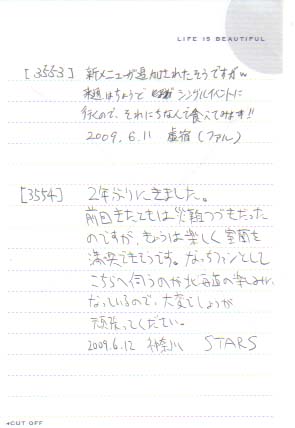 LIFE IS BEAUTIFUL
[3553] 新メニューが追加されたそうですがw
来週はちょうど シングルイベントに
行くので、それにちなんで食べてみます!!
2009.6.11 虚宿(ファル)
[3554] 2年ぶりにきました。
前回きたときは
のですが、きょうは楽しく室蘭を
満喫できそうです。なっちファンとして
こちらへ伺うのが北海道の楽しみに
なっているので、大変でしょうが
頑張ってください。
2009.6.12 神奈川 STARS
CUT OFF